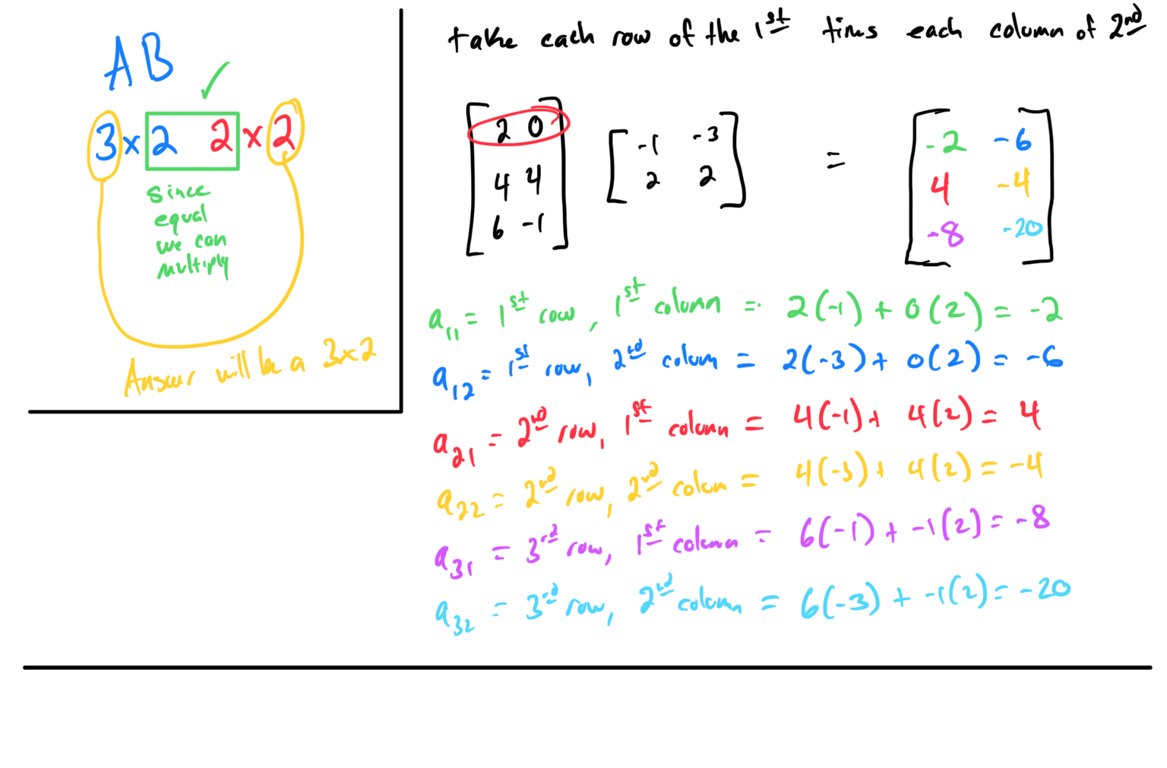 AB
3 × 2 2 × 2
since
equal
we can
multiply
Answer will be a 3×2
take each row of the 1st tims each column of 2nd
[2 0] [-1 -3] = [-2 -6]
[4 4] [2 2] [4 -4]
[6 -1] [-8 -20]
a11 = 1st row, 1st column = 2(-1) + 0(2) = -2
a12 = 1st row, 2nd column = 2(-3) + 0(2) = -6
a21 = 2nd row, 1st column = 4(-1) + 4(2) = 4
a22 = 2nd row, 2nd colum = 4(-3) + 4(2) = -4
a31 = 3rd row, 1st column = 6(-1) + -1(2) = -8
a32 = 3rd row, 2nd column = 6(-3) + -1(2) = -20